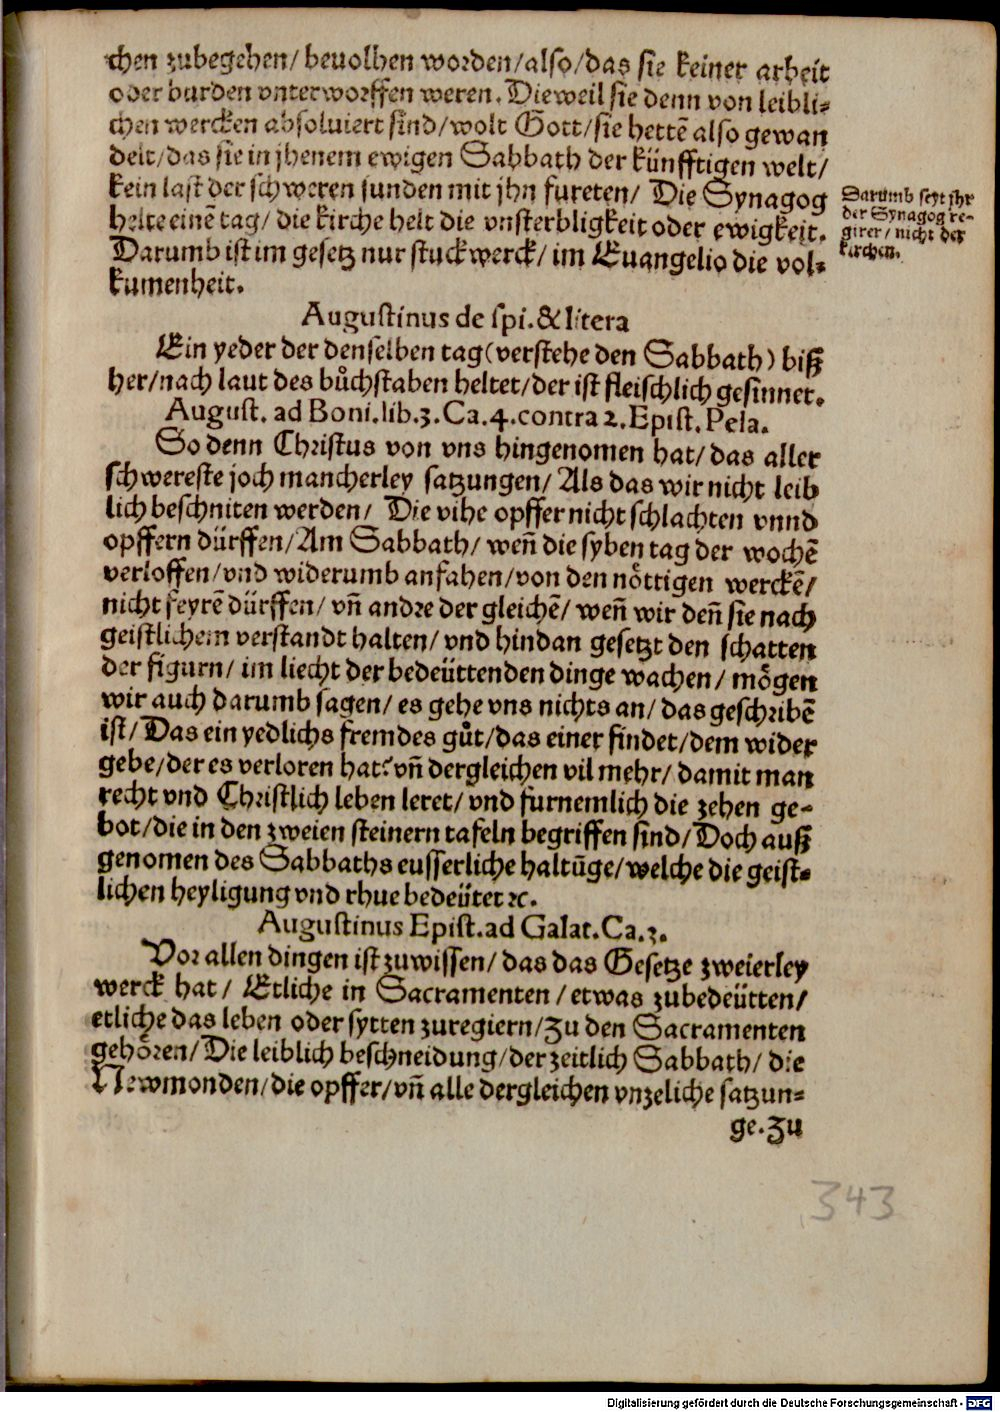 chen zubegehen/ bevolhen worden/also/das sie keiner arbeit
oder burden vnterworffen weren. Dieweil sie denn von leibli⸗
chen wercken absoluiert sind/wolt Gott/sie hettē also gewan
delt/das sie in jhenem ewigen Sabbath der künfftigen welt/
kein last der schweren sunden mit jhn fureten/ Die Synagog
helte einē tag/ die kirche helt die vnsterbligkeit oder ewigkeit.
Darumb ist im gesetz nur stuckwerck/ im Euangelio die vol⸗
kumenheit.
Darumb seyt jhr
der Synagog re⸗
girer/ nicht der
kirchen.
Augustinus de spi. & litera
Ein yeder der denselben tag(verstehe den Sabbath) biß
her/nach laut des bůchstaben heltet/der ist fleischlich gesinnet.
August. ad Boni.lib.3.Ca.4.contra 2.Epist.Pela.
So denn Christus von vns hingenomen hat/ das aller
schwereste joch mancherley satzungen/ Als das wir nicht leib
lich beschniten werden/ Die vihe opffer nicht schlachten vnnd
opffern dürffen/Am Sabbath/ weñ die syben tag der wochē
verloffen/vnd widerumb anfahen/von den nöttigen werckē/
nicht feyrē dürffen/ vñ andre der gleichē/ weñ wir deñ sie nach
geistlichem verstandt halten/ vnd hindan gesetzt den schatten
der figurn/ im liecht der bedeüttenden dinge wachen/ mögen
wir auch darumb sagen/ es gehe vns nichts an/ das geschribē
ist/ Das ein yedlichs fremdes gůt/das einer findet/dem wider
gebe/der es verloren hat? vñ dergleichen vil mehr/ damit man
recht vnd Christlich leben leret/ vnd furnemlich die zehen ge-
bot/die in den zweien steinern tafeln begriffen sind/ Doch auß
genomen des Sabbaths eusserliche haltūge/welche die geist⸗
lichen heyligung vnd rhue bedeütet ꝛc.
Augustinus Epist.ad Galat.Ca.3.
Vor allen dingen ist zuwissen/ das das Gesetze zweierley
werck hat/ Etliche in Sacramenten /etwas zubedeütten/
etliche das leben oder sytten zuregiern/Zu den Sacramenten
gehören/ Die leiblich beschneidung/der zeitlich Sabbath/ die
Newmonden/die opffer/vñ alle dergleichen vnzeliche satzun⸗
ge.Zu
343
Digitalisierung gefördert durch die Deutsche Forschungsgemeinschaft - DFG